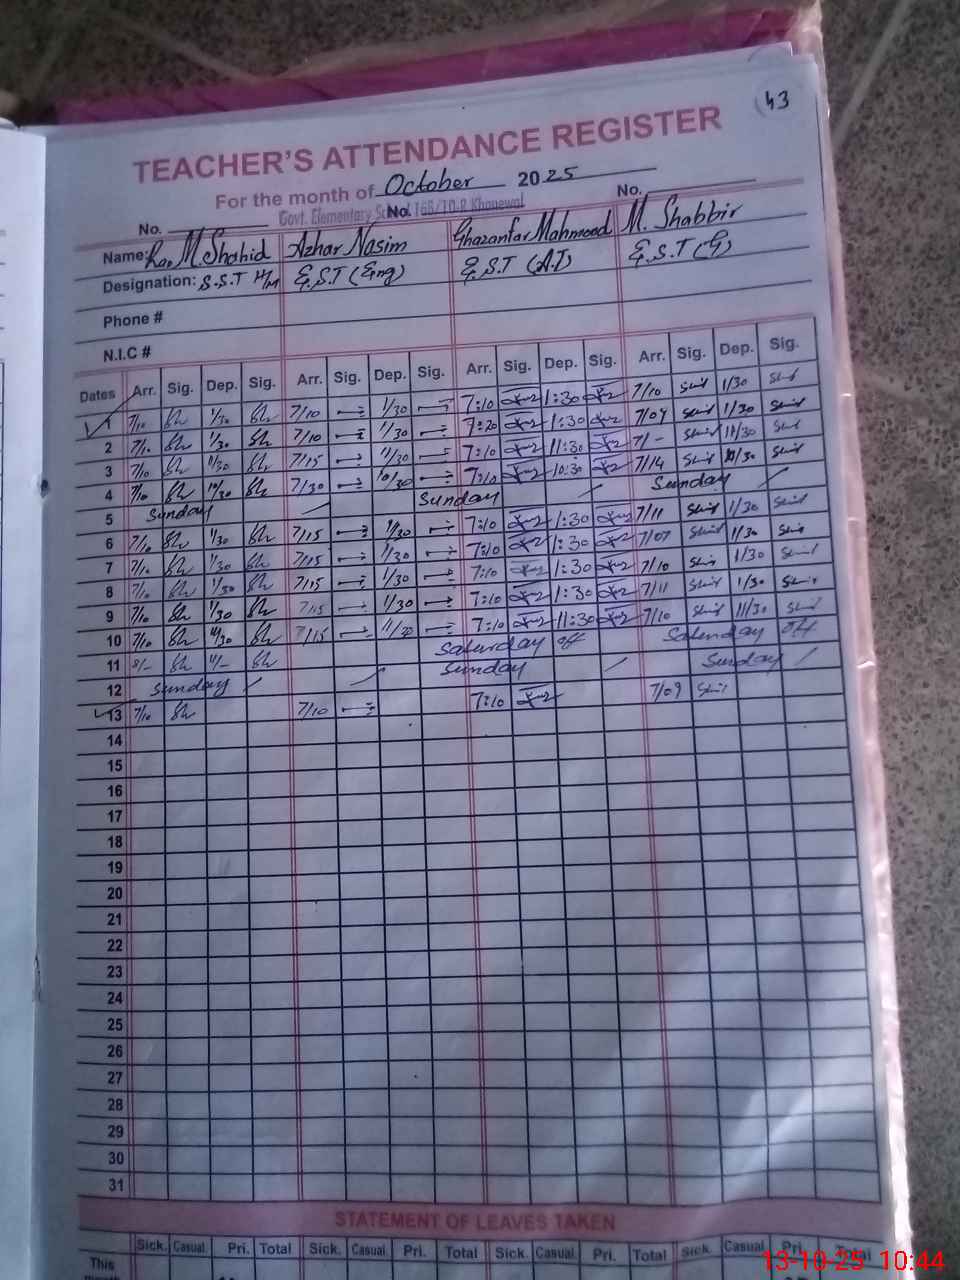 43
TEACHER'S ATTENDANCE REGISTER
For the month of October 2025
Govt. Elementary 16B/10-R Khanewal
No. No. No.
Name: M. Shahid Azhar Nasim Ghazanfar Mahmood M. Shabbir
Designation: S.S.T H/M E.S.T (Eng) E.S.T (A.I) E.S.T (G)
Phone #
N.I.C #
Dates Arr. Sig. Dep. Sig. Arr. Sig. Dep. Sig. Arr. Sig. Dep. Sig. Arr. Sig. Dep. Sig.
1 7/10 1/30 7/10 1/30 7:10 1:30 7/10 1/30
2 7/10 1/30 7/10 1/30 7:20 1:30 7/09 1/30
3 7/10 11/30 7/15 11/30 7:10 11:30 7/- 11/30
4 7/10 10/30 7/30 10/30 7:10 10:30 7/14 /30
5 Sunday Sunday Sunday
6 7/10 1/30 7/15 1/30 7:10 1:30 7/11 1/30
7 7/10 1/30 7/15 1/30 7:10 1:30 7/07 1/30
8 7/10 1/30 7/15 1/30 7:10 1:30 7/10 1/30
9 7/10 1/30 7/15 1/30 7:10 1:30 7/11 1/30
10 7/10 /30 7/15 11/30 7:10 11:30 7/10 11/30
11 8/- 11/- Saturday off Saturday off
12 Sunday Sunday Sunday
13 7/10 7/10 7:10 7/09
14
15
16
17
18
19
20
21
22
23
24
25
26
27
28
29
30
31
STATEMENT OF LEAVES TAKEN
Sick. Casual. Pri. Total Sick. Casual. Pri. Total Sick. Casual. Pri. Total Sick. Casual. Pri. Total
This
month
13-10-25 10:44